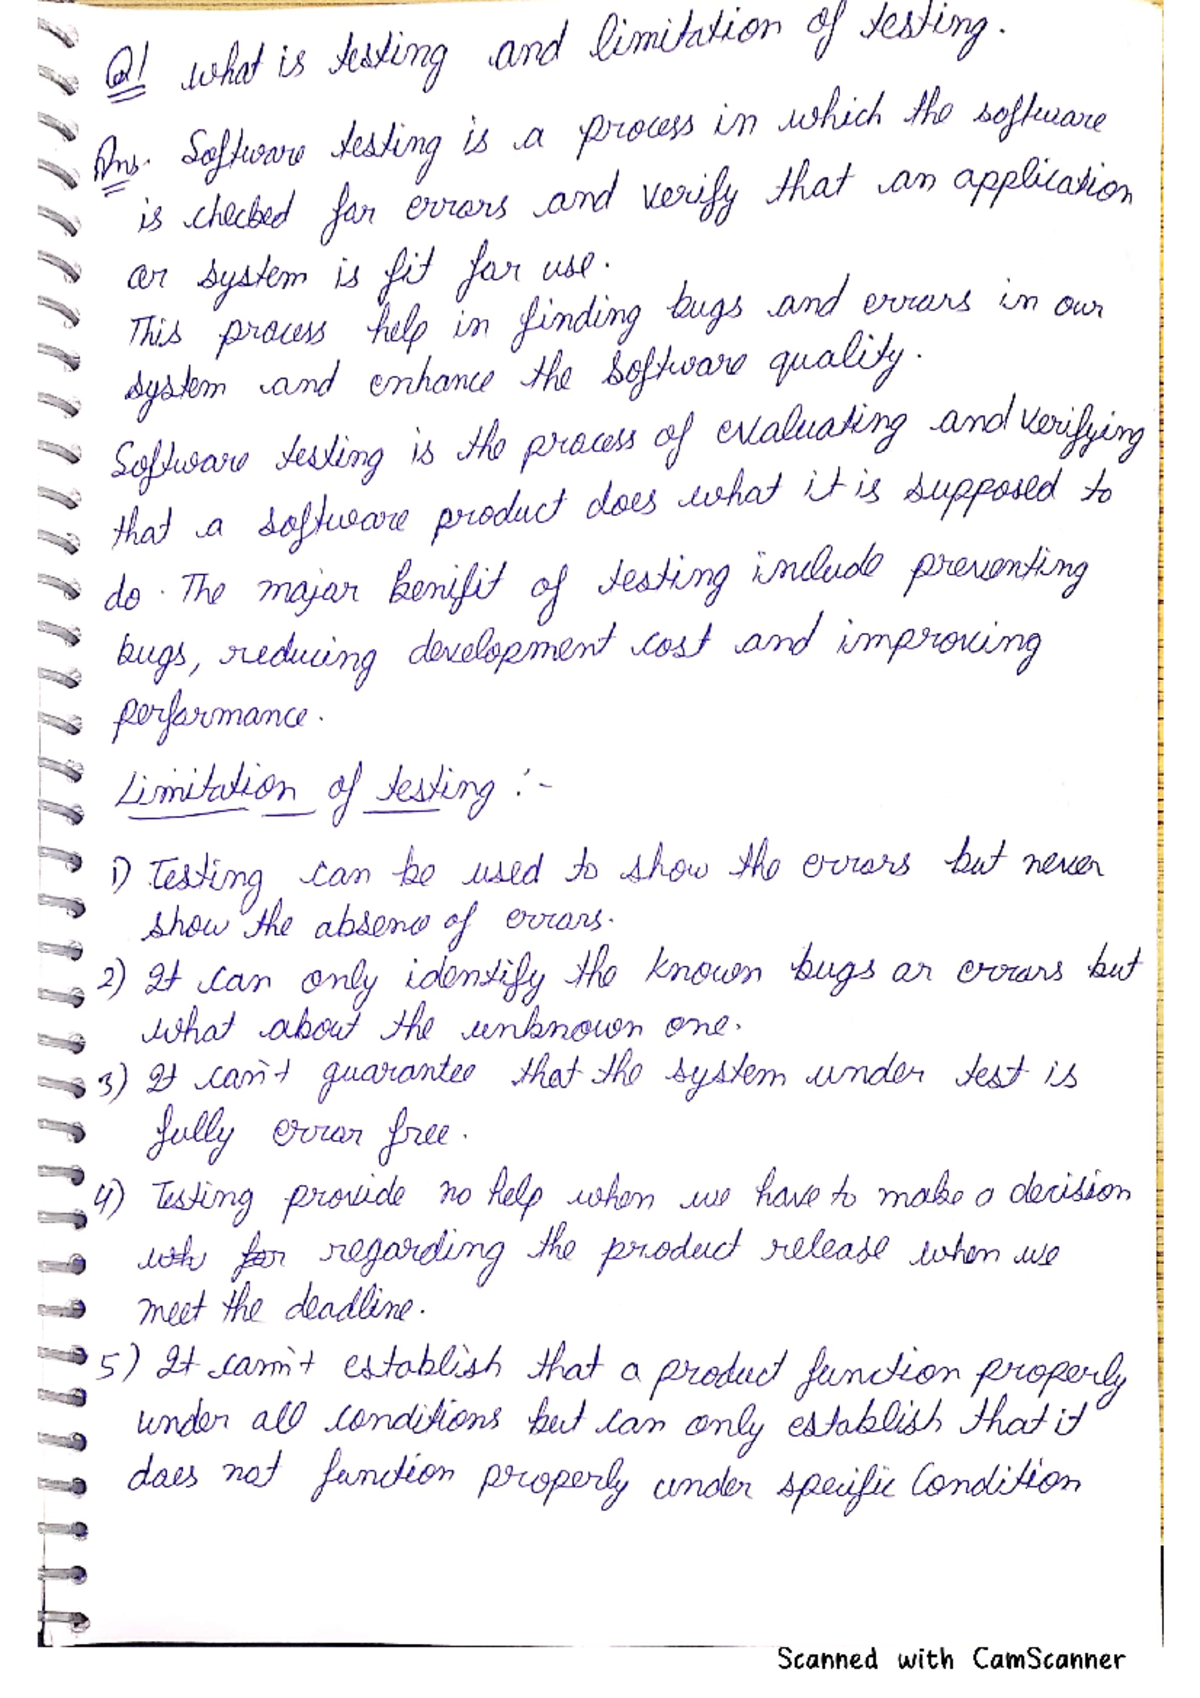 Q1 what is testing and limitation of testing.
Ans. Software testing is a process in which the software
is checked for errors and verify that an application
or system is fit for use.
This process help in finding bugs and errors in our
system and enhance the software quality.
Software testing is the process of evaluating and verifying
that a software product does what it is supposed to
do. The major benifit of testing include preventing
bugs, reducing development cost and improving
performance.
Limitation of testing :-
1) Testing can be used to show the errors but never
show the absence of errors.
2) It can only identify the known bugs or errors but
what about the unknown one.
3) It can't guarantee that the system under test is
fully error free.
4) Testing provide no help when we have to make a decision
regarding the product release when we
meet the deadline.
5) It cann't establish that a product function properly
under all conditions but can only establish that it
does not function properly under specific Condition
Scanned with CamScanner